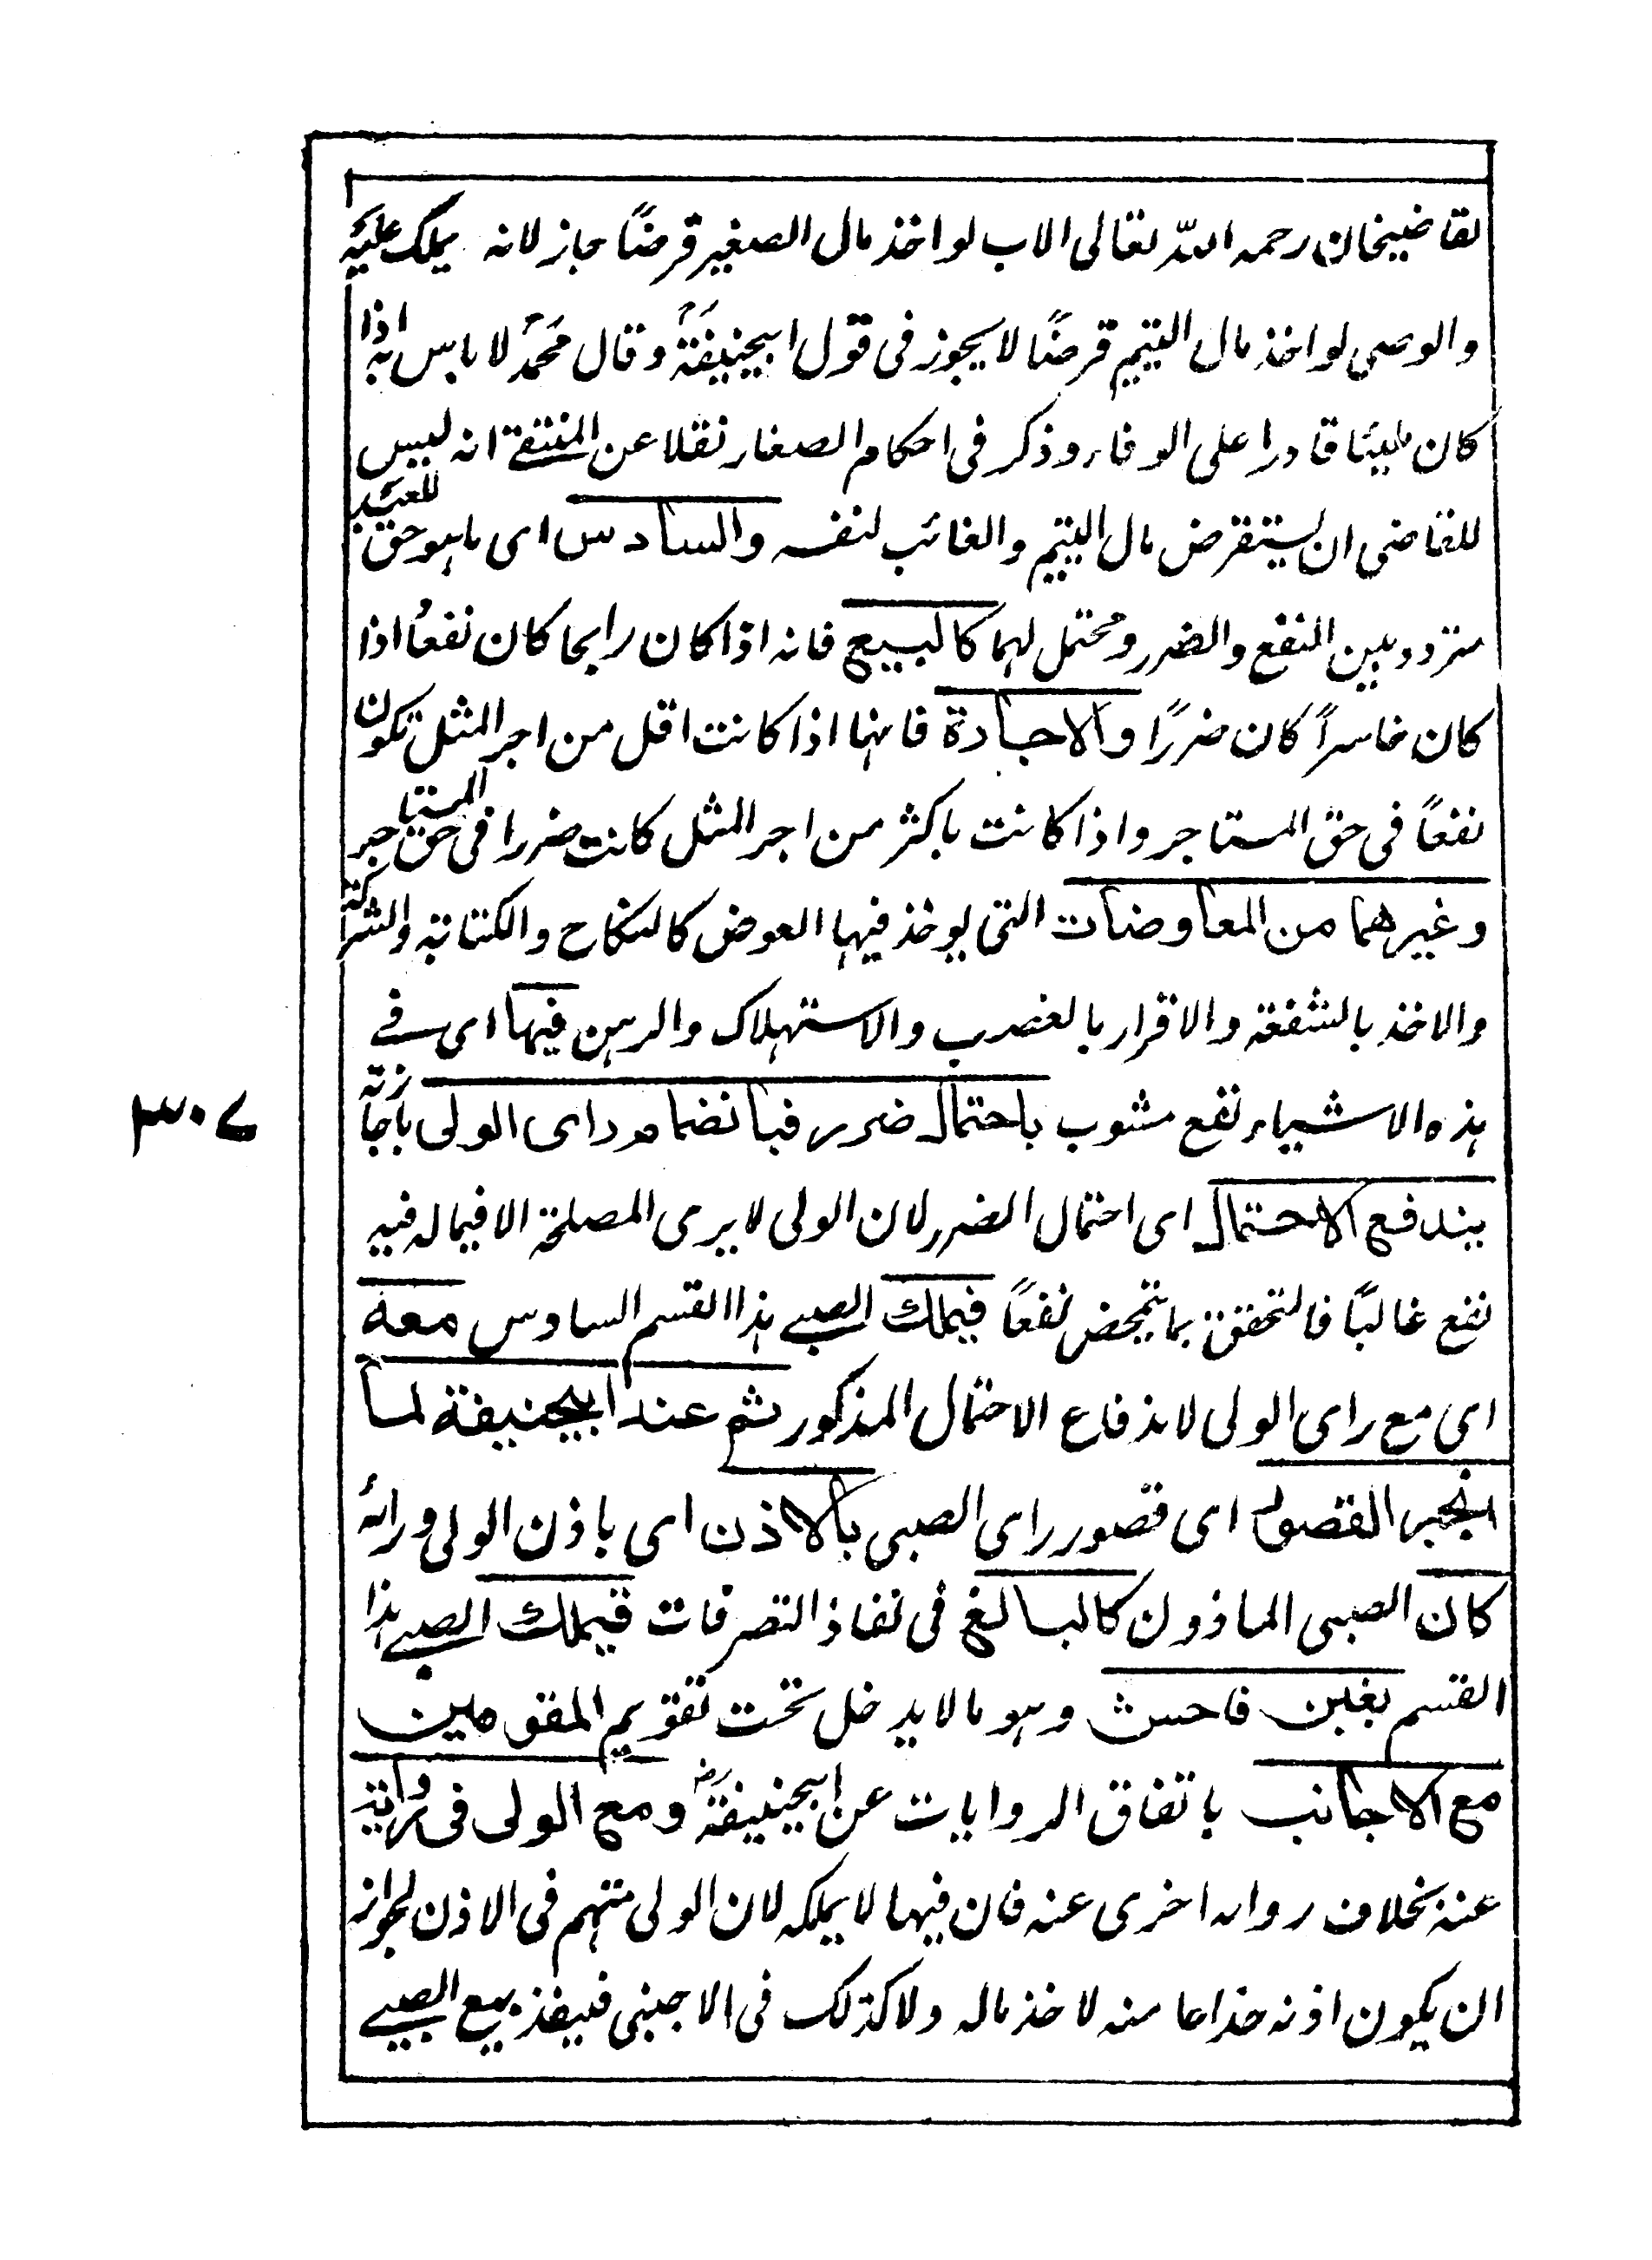 لقاضيخان رحمه الله تعالى الاب لو اخذ مال الصغير قرضًا جاز لانه يملك عليه
والوصى لو اخذ مال اليتيم قرضًا لا يجوز فى قول ابيحنيفةؒ وقال محمدؒ لا باس به اذا
كان مليئًا قادرا على الوفاء وذكر فى احكام الصغار نقلا عن المنتقے انه ليس
للقاضى ان يستقرض مال اليتيم والغائب لنفسه والسادس اى ما هو حق للعبد
متردد بين النفع والضرر ومحتمل لهما كالبيع فانه اذا كان رابحا كان نفعًا و اذا
كان خاسراً كان ضررًا والاجارة فانها اذا كانت اقل من اجر المثل تكون
نفعاً فى حق المستاجر واذا كانت باكثر من اجر المثل كانت ضررا فى حق المستاجر
وغيرهما من المعاوضات التى يوخذ فيها العوض كالنكاح والكتابة والشركة
والاخذ بالشفعة والاقرار بالغصب والاستهلاك والرهن فيها اى فے
هذه الاشياء نفع مشوب باحتمال ضرر فبانضمام راى الولى باجازته
يندفع الاحتمال اى احتمال الضرر لان الولى لا يرى المصلحة الا فيما له فيه
نفع غالبًا فالتحقق بما يتمحض نفعًا فيملك الصبے هذا القسم السادس معه
اى مع راى الولى لاندفاع الاحتمال المذكور ثم عند ابيحنيفة لما
انجبر القصور اى قصور راى الصبى بالاذن اى باذن الولى ورائه
كان الصبى الماذون كالبالغ فى نفاذ التصرفات فيملك الصبے هذا
القسم بغبن فاحش وهو ما لا يدخل تحت تقويم المقومين
مع الاجانب باتفاق الروايات عن ابيحنيفةؓ ومع الولى فى رواية
عنه بخلاف رواية اخرى عنه فان فيها لا يملكه لان الولى متهم فى الاذن لجواز
ان يكون اذنه خداعا منه لاخذ ماله ولا كذلك فى الاجنبى فينفذ بيع الصبے
٣٠٧